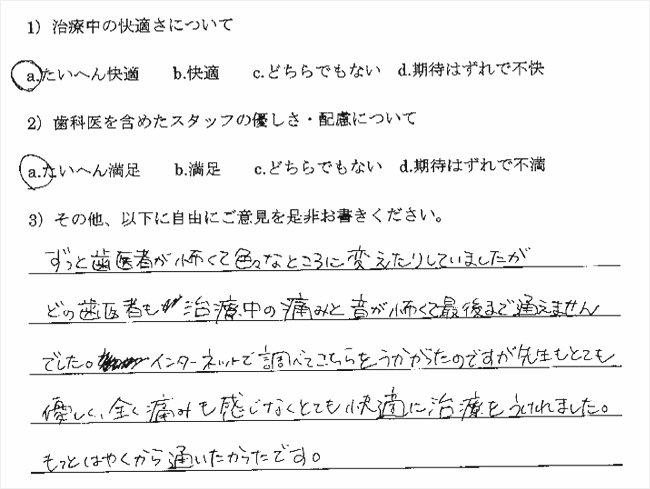 1）治療中の快適さについて
a.たいへん快適　b.快適　c.どちらでもない　d.期待はずれで不快
2）歯科医を含めたスタッフの優しさ・配慮について
a.たいへん満足　b.満足　c.どちらでもない　d.期待はずれで不満
3）その他、以下に自由にご意見を是非お書きください。
ずっと歯医者が怖くて色々なところに変えたりしていましたが
どの歯医者も治療中の痛みと音が怖くて最後まで通えません
でした。インターネットで調べてこちらをうかがったのですが先生もとても
優しく、全く痛みも感じなくとても快適に治療をうけれました。
もっとはやくから通いたかったです。